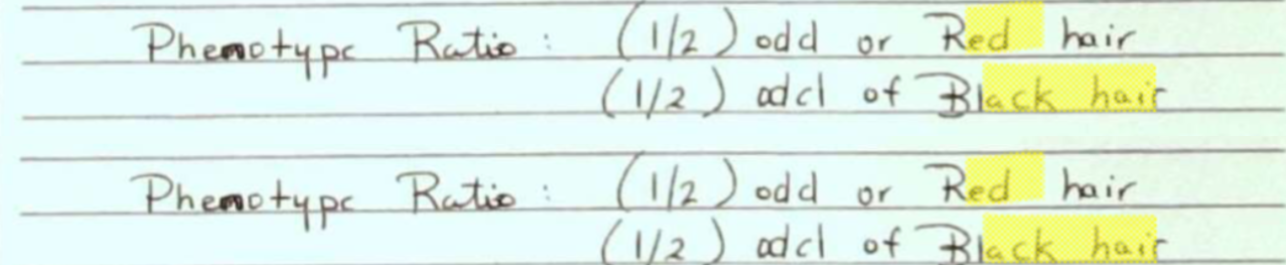 Phenotype Ratio : (1/2) odd or Red hair
(1/2) odd of Black hair
Phenotype Ratio : (1/2) odd or Red hair
(1/2) odd of Black hair